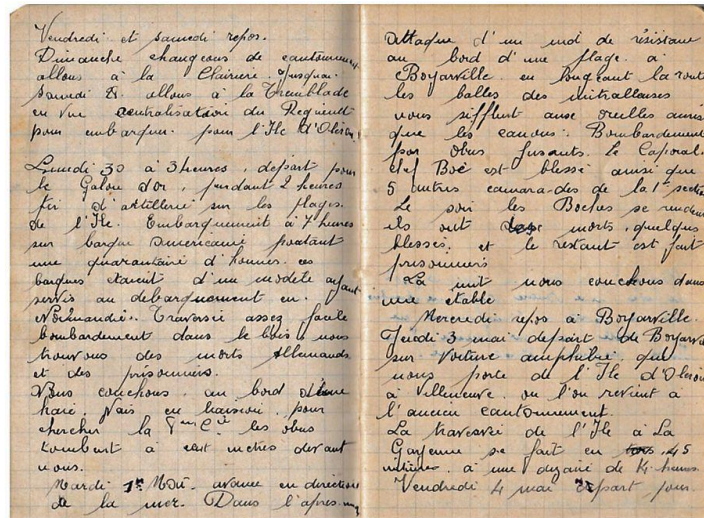 Vendredi et samedi repos.
Dimanche changeons de cantonnement
allons à la Clairière. Jusqu'au
Samedi 28. allons à la Tremblade
en vue centralisation du Régiment
pour embarquer. pour l'Ile d'Oléron.
Lundi 30 à 3 heures, départ pour
le Galon d'Or, pendant 2 heures
tir d'artillerie sur les plages.
de l'Ile. Embarquement à 7 heures
sur barque Americaine portant
une quarantaine d'hommes. ces
barques étaient d'un modèle ayant
servis au debarquement en.
Normandie. Traversée assez facile
bombardement dans le bois, nous
trouvons des morts Allemands
et des prisonniers.
Nous couchons, au bord d'une
haie. Vais en liaison. pour
chercher la Cie les obus
tombent à cent mètres devant
nous.
Mardi 1er Mai. avance en direction
de la mer. Dans l'après-midi
Attaque d'un nid de résistance
au bord d'une plage. à
Boyarville. en longeant la route
les balles des mitrailleuses
nous sifflent aux oreilles ainsi
que les canons. Bombardement
par obus fusants. Le Caporal.
chef Boé est blessé ainsi que
5 autres camarades de la 1re section
Le soir les Boches se rendent
ils ont morts, quelques
blessés. et le restant est fait
prisonniers
La nuit nous couchons dans
une étable
Mercredi repos à Boyarville.
Jeudi 3 mai départ de Boyarville
sur voiture amphibie. qui
nous porte de l'Ile d'Oléron
à Villeneuve. ou l'on revient à
l'ancien cantonnement.
La traversée de l'Ile à La
Garenne se fait en 45
minutes. à une dizaine de
Vendredi 4 mai départ pour.